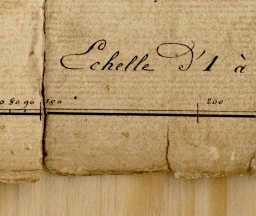 Echelle D'1 à
80 90 150
200